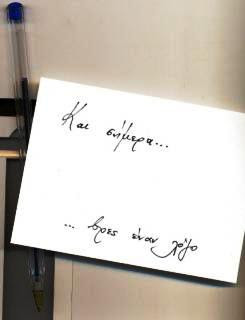 Και σήμερα...
... βρες έναν λόγο